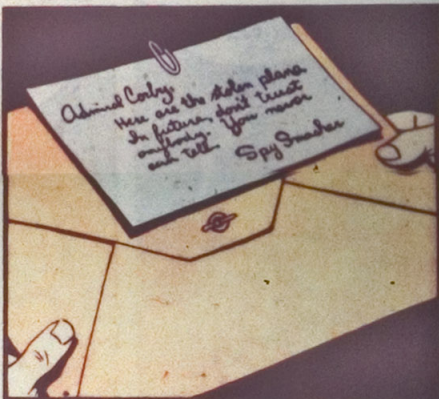 Admiral Corby.
Here are the stolen plans
In future, don't trust
anybody. You never
can tell.
Spy Smasher